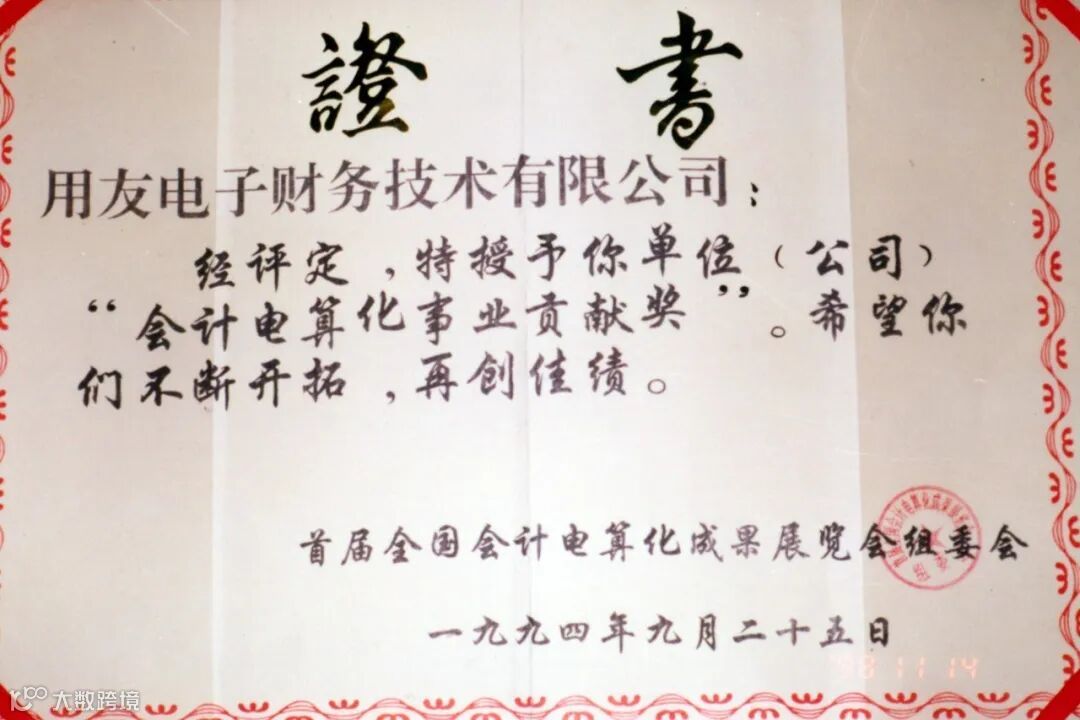 證書
用友电子财务技术有限公司：
经评定，特授予你单位（公司）
“会计电算化事业贡献奖”。希望你
们不断开拓，再创佳绩。
首届全国会计电算化成果展览会组委会
一九九四年九月二十五日
'98 11 14
大数跨境